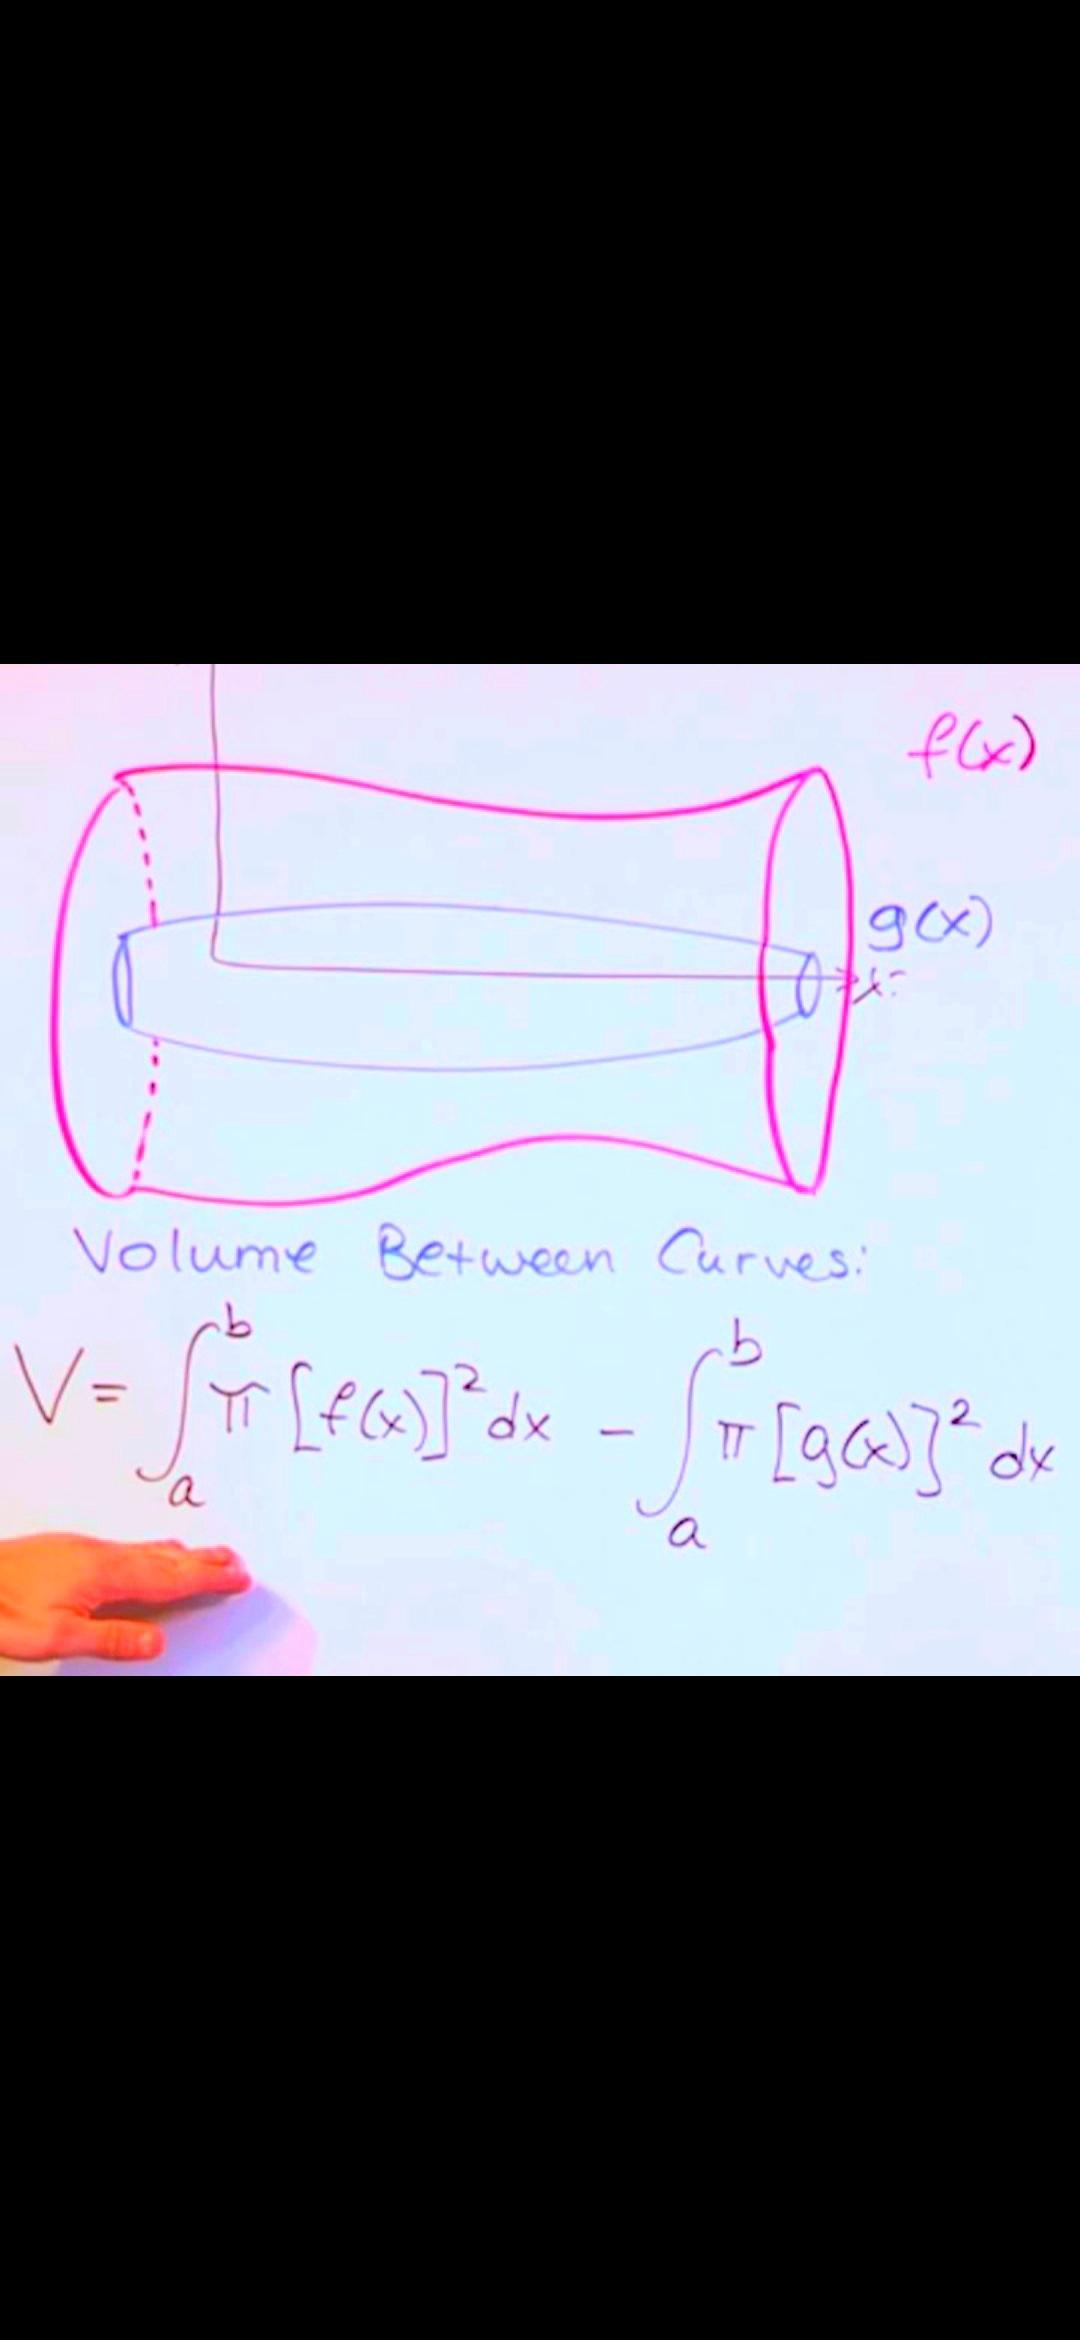 f(x)
g(x)
x
Volume Between Curves:
V= ∫_a^b π [f(x)]² dx - ∫_a^b π [g(x)]² dx